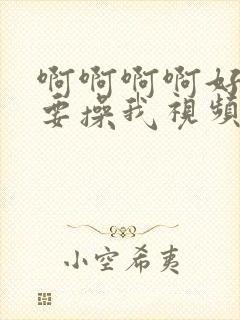 啊啊啊啊好
要操我视频
小空希夷